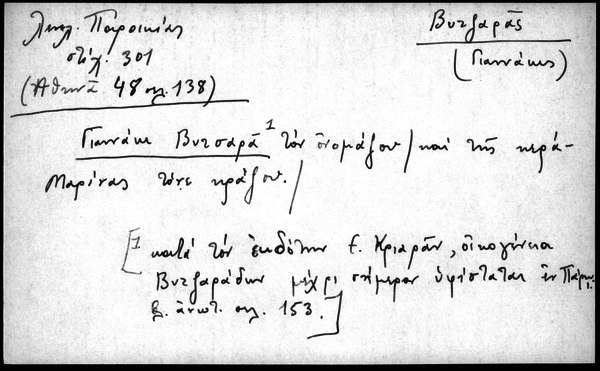 Λεηλ. Παροικίας
στίχ. 301
(Ἀθηνᾶ 48 σελ. 138)
Βυτζαρᾶς
(Γιαννάκης)
Γιαννάκι Βυτσαρᾶ¹ τὸν ὀνομάζου / καὶ τῆς κερά-
Μαρίνας τόνε κράζου. /
[1 κατά τόν ἐκδότην Ε. Κριαρᾶν, οἰκογένεια
Βυτζαράδων μέχρι σήμερον ὑφίσταται ἐν Πάρῳ.
β. ἀνωτ. σελ. 153.]